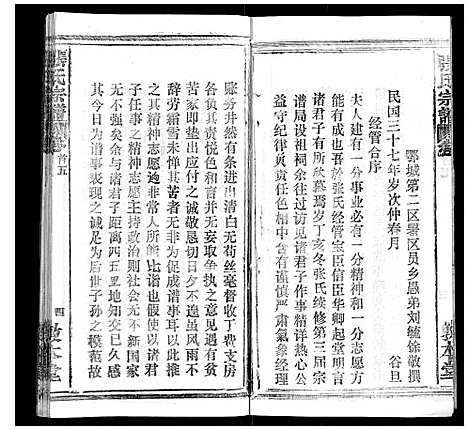 鄂城第二区署区员乡愚弟刘毓馀敬撰
民国三十七年岁次仲春月 谷旦
经管合序
夫人建有一分事业必有一分精神和一分志愿方
能有成也吾於张氏经管宝臣信臣华卿起堂明言
诸君子有所欣慕焉岁丁亥冬张氏续修第三届宗
谱局设祖祠余往访诸君子作事精详热心公
益守纪律负责任色相中含有谨慎严肃气象经理
账务井然有条进出清白无苟丝毫督收丁费支房
各负其责悦色和言解免取
苦家即垫出应付之诚敬恳切日夕不遑虽风
辞劳霜雪未惮其苦者无非为促成谱事耳以此推
之其精神志愿迨非常人所能比谱也假使以诸君
子任事之精神志愿主持政治则社会无不新国家
无不强矣余与诸君子距离四五里地知交已久感
其今日为谱事表现之诚足为后世子孙之模范故
張氏宗譜
首五
四
敦本堂
張氏宗譜
敦本堂